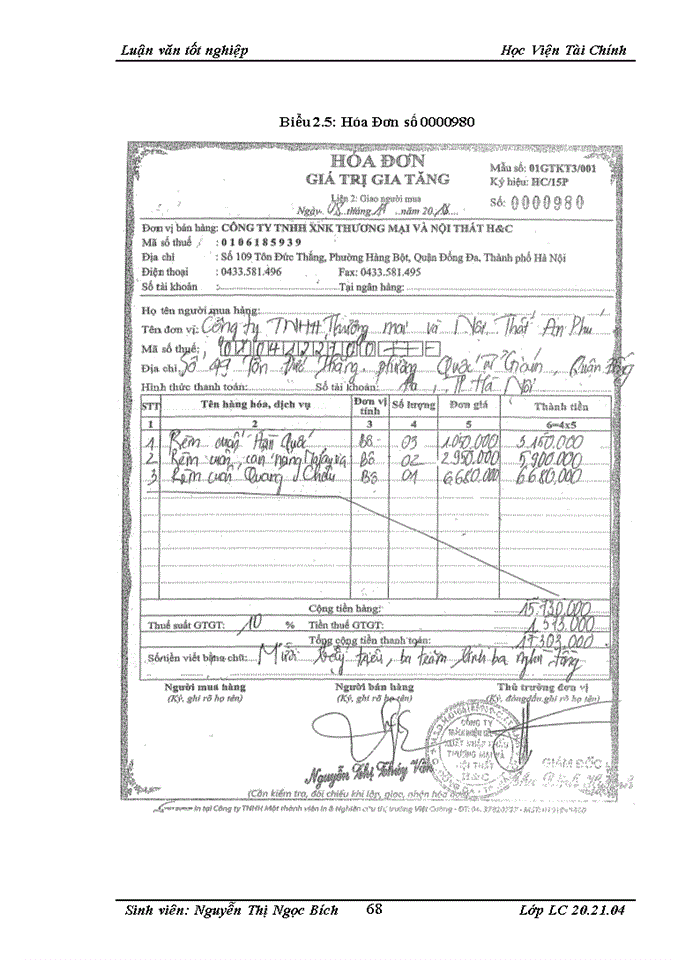 Luận văn tốt nghiệp Học Viện Tài Chính
Biểu 2.5: Hóa Đơn số 0000980
HÓA ĐƠN
GIÁ TRỊ GIA TĂNG
Mẫu số: 01GTKT3/001
Ký hiệu: HC/15P
Liên 2: Giao người mua
Số: 0000980
Ngày 08 tháng 11 năm 2018
Đơn vị bán hàng: CÔNG TY TNHH XNK THƯƠNG MẠI VÀ NỘI THẤT H&C
Mã số thuế : 0106185939
Địa chỉ : Số 109 Tôn Đức Thắng, Phường Hàng Bột, Quận Đống Đa, Thành phố Hà Nội
Điện thoại : 0433.581.496 Fax: 0433.581.495
Số tài khoản : Tại ngân hàng:
Họ tên người mua hàng:
Tên đơn vị: Công ty TNHH Thương mại và Nội Thất An Phú
Mã số thuế:
Địa chỉ Số 49 Tôn Đức Thắng, phường Quốc Tử Giám, Quận Đống
Hình thức thanh toán: Số tài khoản: Đa, TP Hà Nội
STT Tên hàng hóa, dịch vụ Đơn vị tính Số lượng Đơn giá Thành tiền
1 2 3 4 5 6=4x5
1 Rèm cuốn Hàn Quốc Bộ 03 1.050.000 3.150.000
2 Rèm cuốn Bộ 02 2.950.000 5.900.000
3 Rèm cuốn Quang Châu Bộ 01 6.680.000 6.680.000
Cộng tiền hàng: 15.730.000
Thuế suất GTGT: 10 % Tiền thuế GTGT: 1.573.000
Tổng cộng tiền thanh toán: 17.303.000
Số tiền viết bằng chữ: Mười bảy triệu, ba trăm linh ba nghìn đồng
Người mua hàng Người bán hàng Thủ trưởng đơn vị
(Ký, ghi rõ họ tên) (Ký, ghi rõ họ tên) (Ký, đóng dấu, ghi rõ họ tên)
CÔNG TY
XUẤT NHẬP KHẨU
THƯƠNG MẠI VÀ
NỘI THẤT
H&C
GIÁM ĐỐC
Nguyễn Thị Thúy Vân
(Cần kiểm tra, đối chiếu khi lập, giao, nhận hóa đơn)
In tại Công ty TNHH Một thành viên In & Nghiên cứu thị trường Việt Cường
Sinh viên: Nguyễn Thị Ngọc Bích 68 Lớp LC 20.21.04